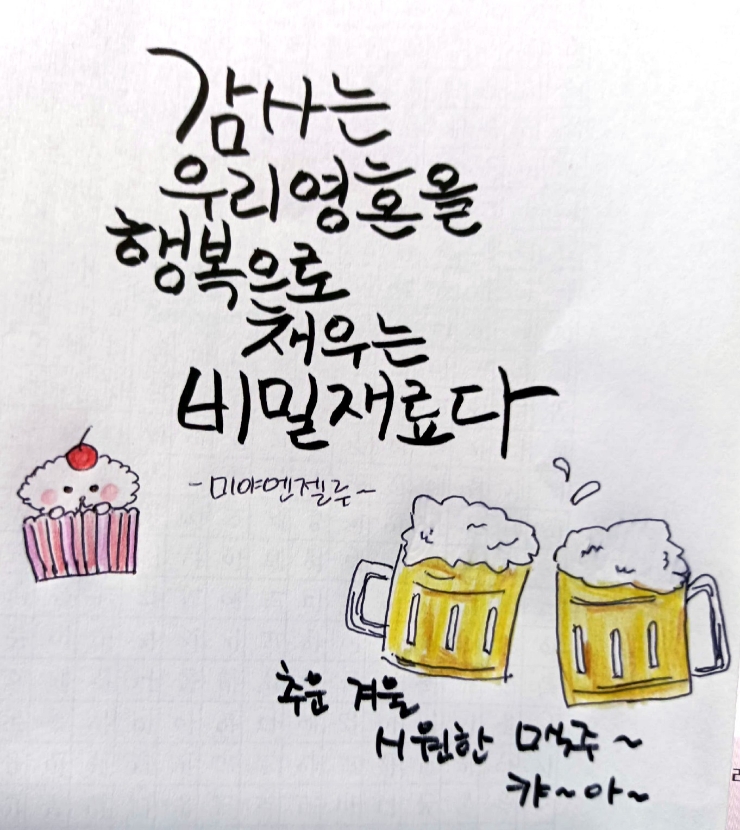 감사는
우리영혼을
행복으로
채우는
비밀재료다
-미야멘젤루~
추운 겨울
시원한 맥주~
캬~아~